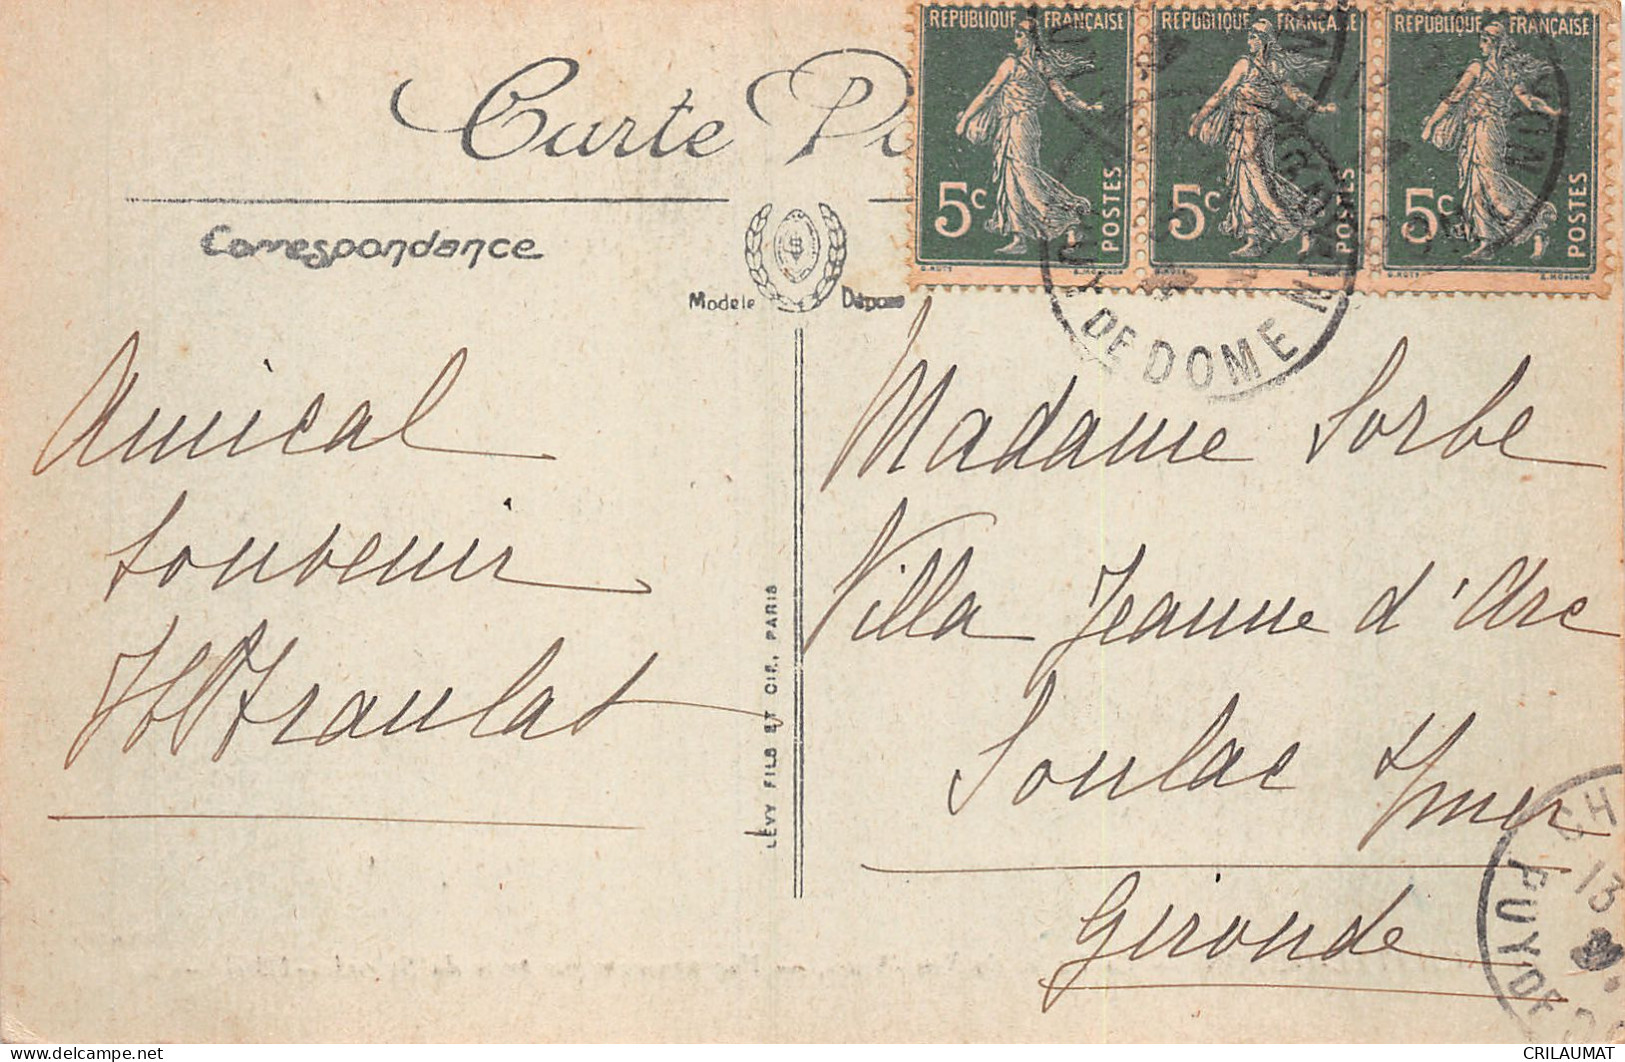 RÉPUBLIQUE FRANÇAISE
5c
POSTES
RÉPUBLIQUE FRANÇAISE
5c
POSTES
RÉPUBLIQUE FRANÇAISE
5c
POSTES
Carte
Correspondance
Modèle Déposé
DE DOME
Amical
Souvenir
LÉVY FILS ET CIE, PARIS
Madame Sorbe
Villa Jeanne d'Arc
Soulac s/mer
Gironde
CH
13
PUY DE
CRILAUMAT